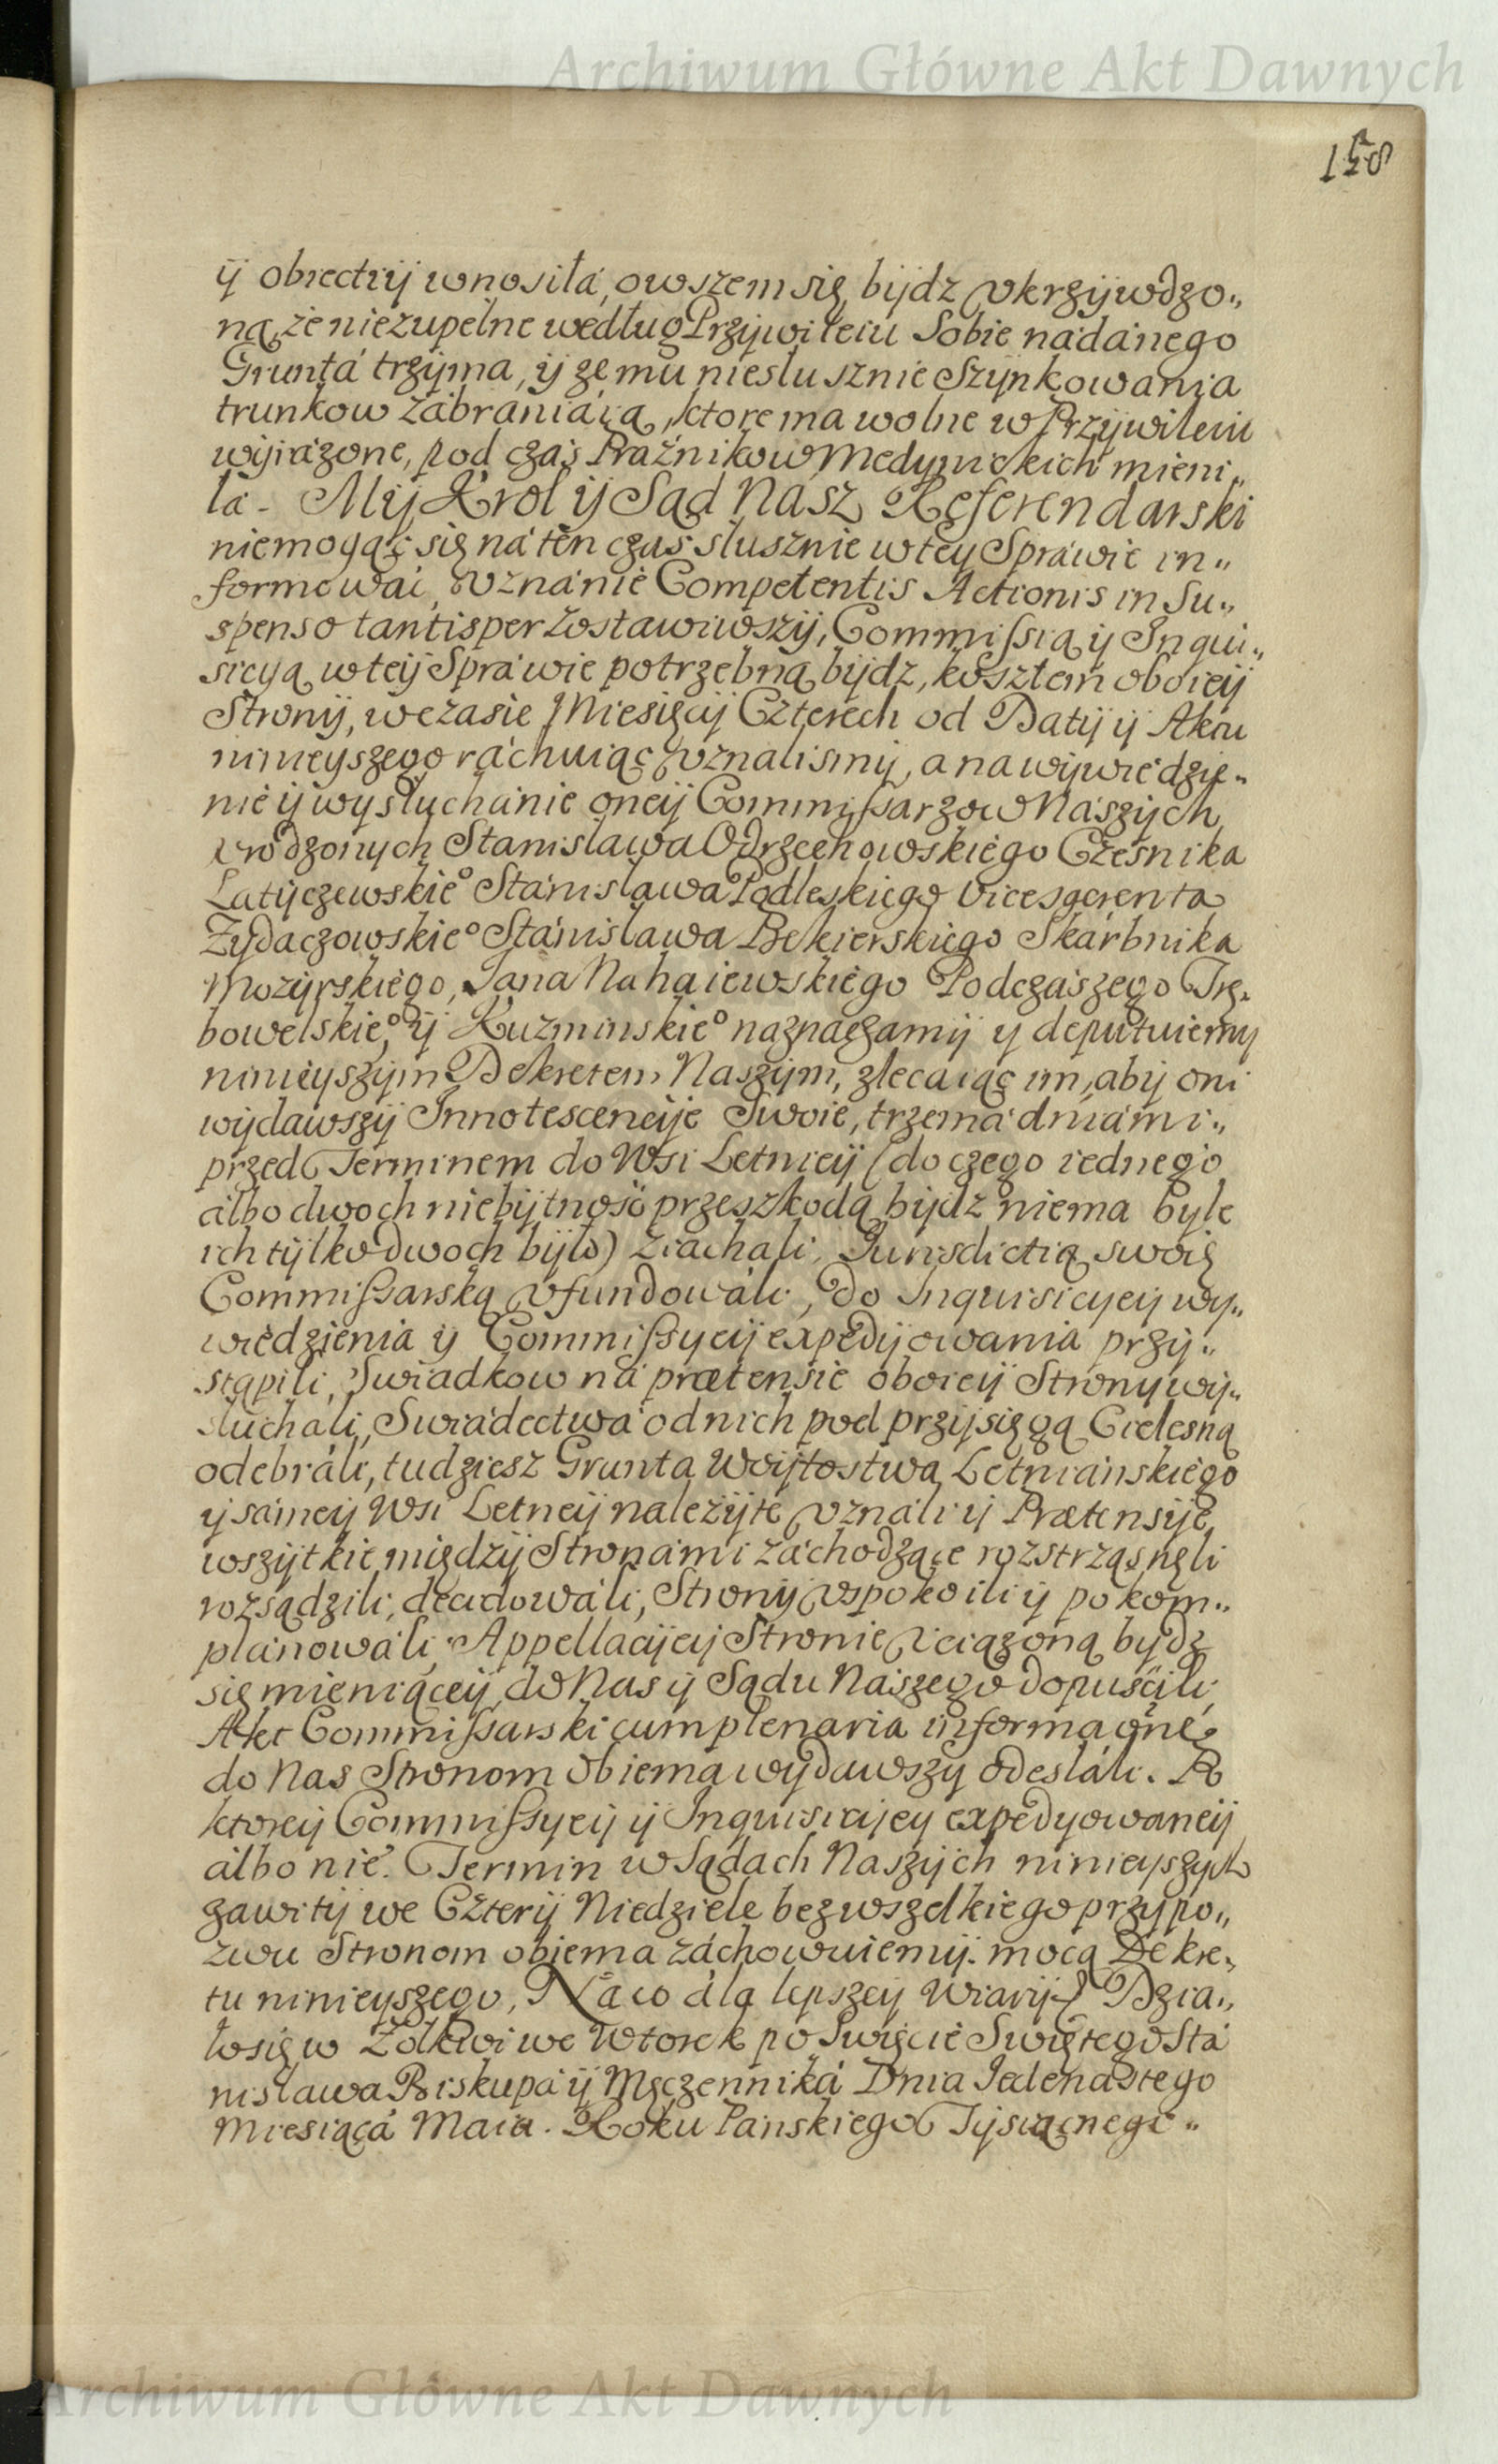 Archiwum Główne Akt Dawnych
158
ij obiectij wnosiłá, owszem się bijdz vkrzijwdzo„
ną że niezupełne według Przijwileiu Sobie nádánego
Gruntá trzijma, ij że mu niesłusznie Szijnkowania
trunkow zábrániáią, ktore ma wolne w Przijwileiu
wijrázone, pod czás Praźnikow Medynickich mieni„
łá. Mij Krol ij Sąd Nász Referendarski
niemogąc się ná ten czas słusznie w tey Spráwie in„
formowáć, vznánie Competentis Actionis in Su„
spenso tantisper zostáwiwszij, Commissią ij Inqui„
sicyą w teij Spráwie potrzebną bijdz, kosztem oboieij
Stronij, w czasie Miesięcij Czterech od Datij ij Aktu
ninieyszego ráchuiąc vznalismij, a na wijwiedzie„
nie ij wysłuchánie oneij Commissarzow Nászych
vrodzonych Stanisláwa Odrzechowskiego Cześnika
Latijczewskieº Stánisława Podleskiego Vicesgerenta
Zydaczowskieº Stánisława Bekierskiego Skárbnika
Mozijrskiego, Jana Nahaiewskiego Podczászego Trę„
bowelskieº, ij Kuzminskieº náznaczamij y deputuiemy
ninieyszijm Dekretem Naszijm, zlecaiąc im, abij oni
wijdawszij Innotescencije Swoie, trzemá dniámi„
przed Terminem do Wsi Letnieij (do czego iednego
álbo dwoch niebijtność przeszkodą bijdź niema byle
ich tijlko dwoch bijło) ziachali, Jurisdictią swoię
Commissarską vfundowáli, do Inquisicyeij wy„
wiedzienia ij Commissyeij expedijowania przij„
stąpili, Swiadkow ná prætensie oboieij Strony wij„
słucháli, Swiádectwá od nich pod przijsięgą Cielesną
odebráli, tudziesz Grunta Woijtostwa Letniánskiego
ij sámeij Wsi Letneij należijte vználi ij Prætensije
wszijtkie międzij Stronámi záchodzące rozstrząsnęli
rozsądzili, decidowáli, Stronij vspokoili ij pokom„
plánowáli, Appellacijeij Stronie vciążoną bydz
się mieniącey, do Nas ij Sądu Nászego dopuścili,
Akt Commissarski cum plenaria informaõne
do Nas Stronom obiema wydawszy odesłáli. Po
ktoreij Commissyeij ij Inquisicijey expedyowaneij
álbo nie. Termin w Sądach Naszijch ninieyszych
zawitij we Czterij Niedziele bez wszelkiego przypo„
zwu Stronom obiema záchowuiemij. mocą Dekre„
tu ninieyszego. Ná co dla lepszey Wiarij &c Dzia„
ło się w Zołkwi we Wtorek po Swięcie Swiętego Stá
nisława Biskupá ij Męczenniká Dnia Jedenastego
Miesiącá Maia. Roku Panskiego Tijsiącnego„
Archiwum Główne Akt Dawnych